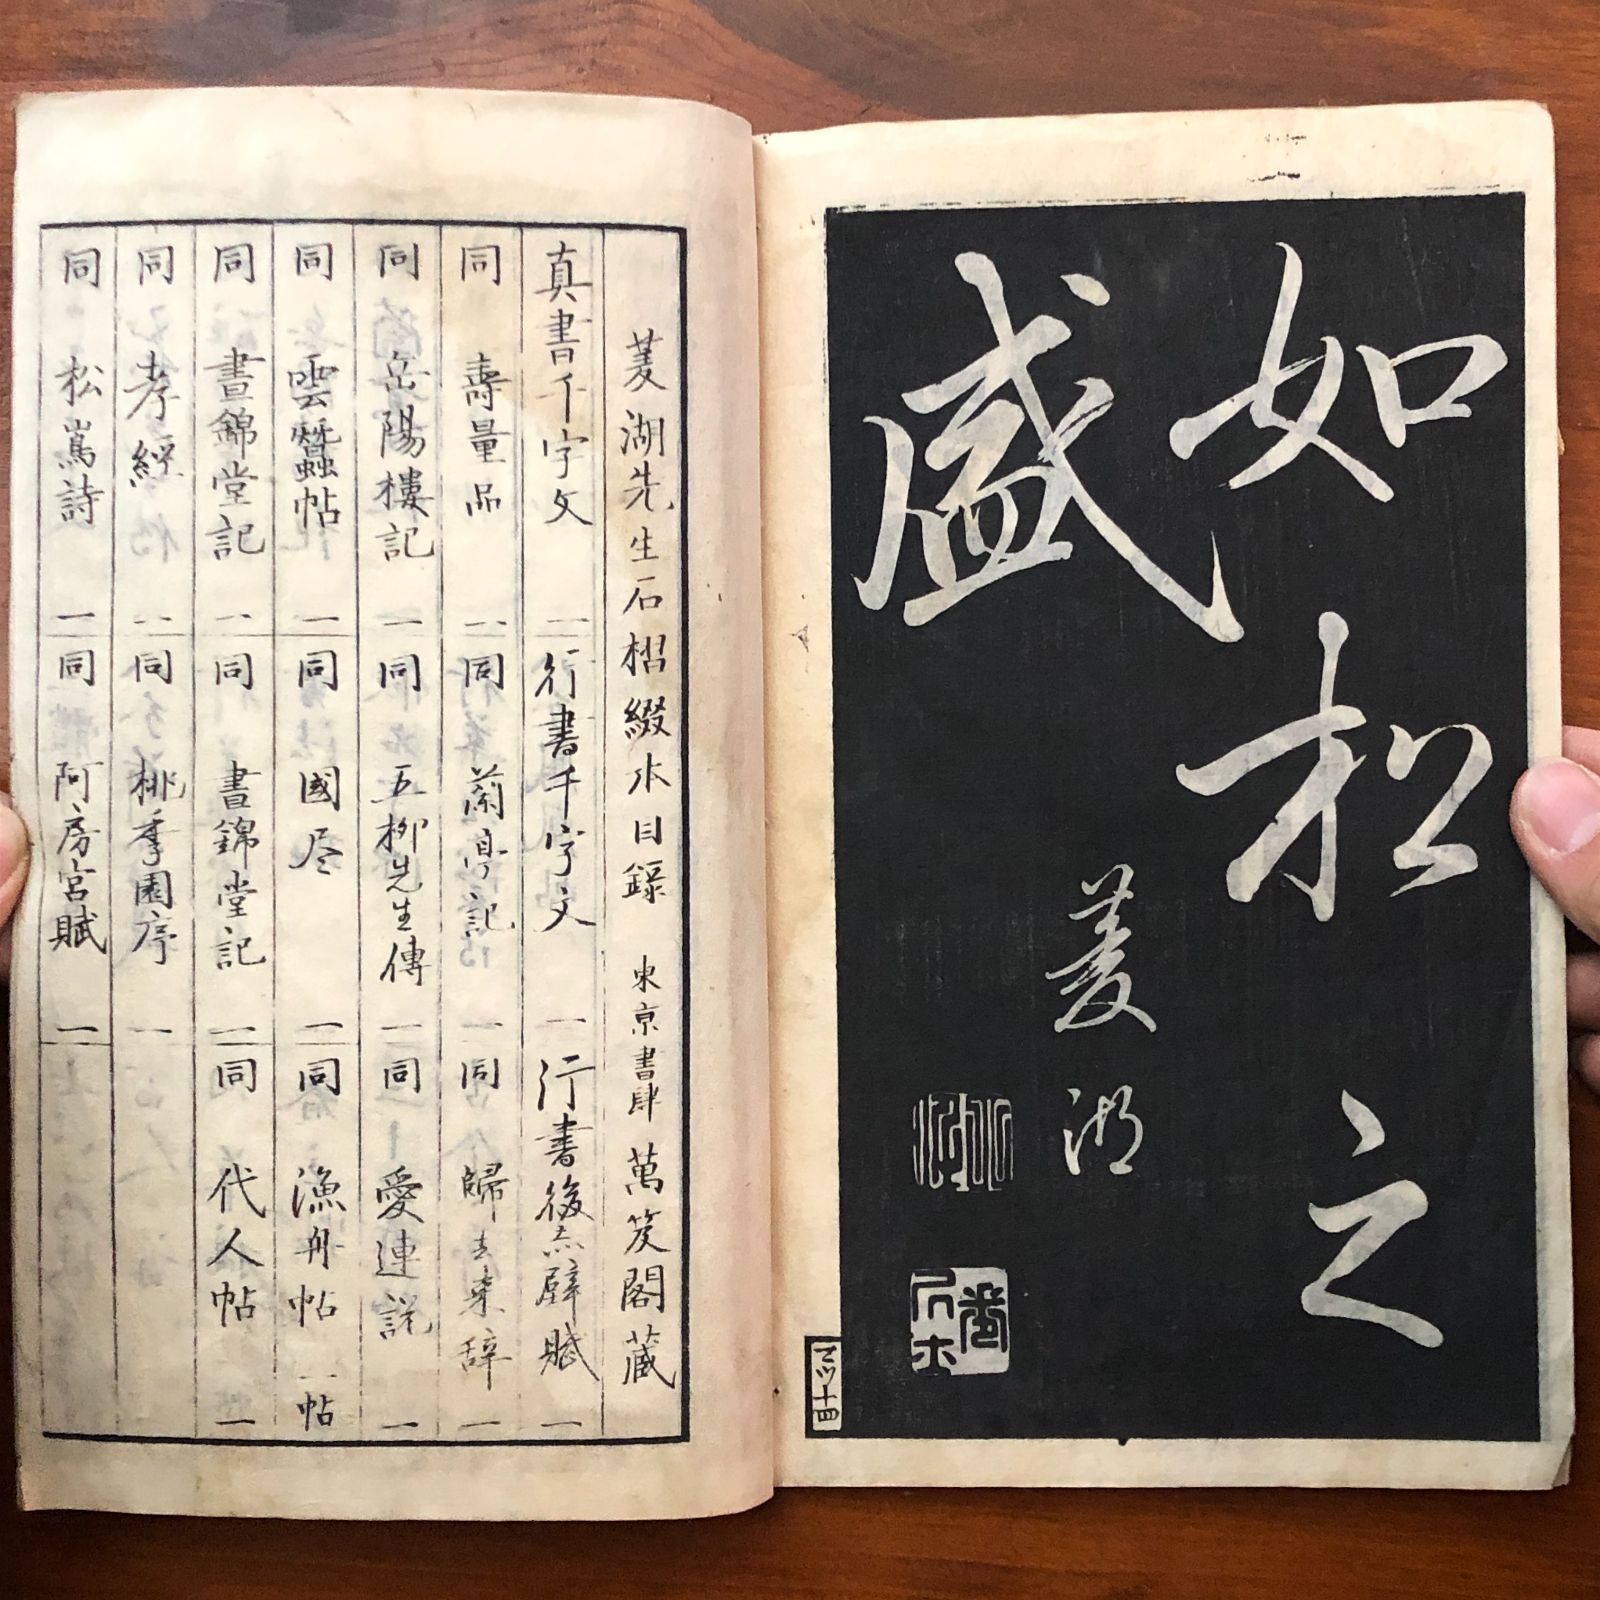 如松之
盛
菱湖
三ツ十四
菱湖先生石摺綴本目録 東京書肆 萬笈閣蔵
真書千字文 一
行書千字文 一
行書後赤壁賦 一
同 壽量品 一
同 蘭亭記 一
同 歸去来辞 一
同 岳陽樓記 一
同 五柳先生傳 一
同 愛連説 一
同 雲蠶帖 一
同 國尽 一
同 漁舟帖 二帖
同 晝錦堂記 一
同 晝錦堂記 一
同 代人帖 一
同 孝經 二
同 桃李園序 一
同 松嶌詩 一
同 阿房宮賦 一